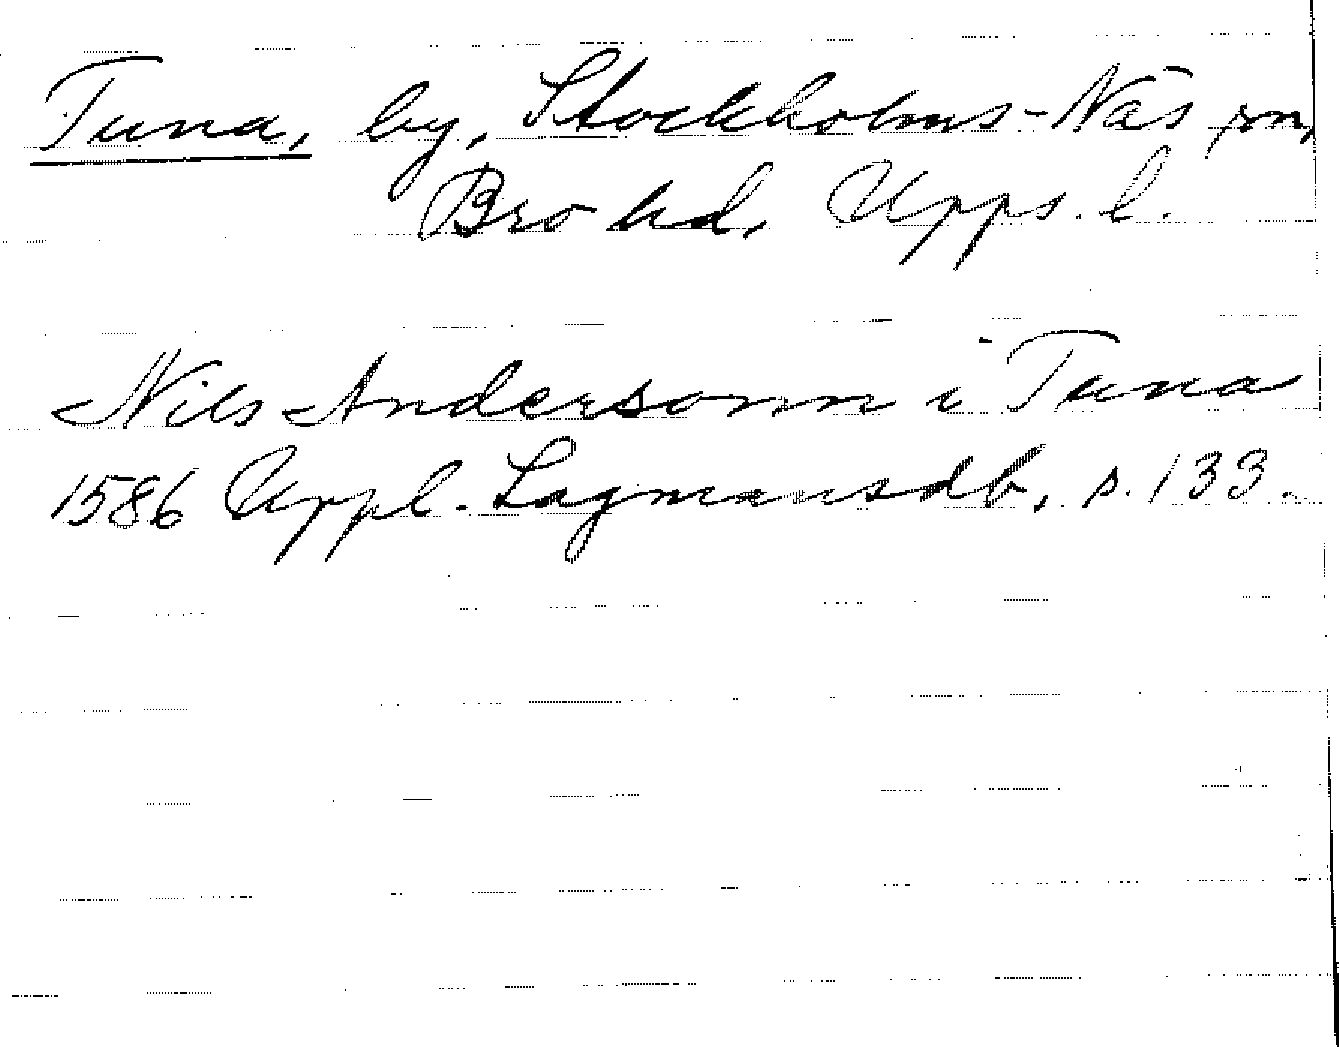 Tuna, by, Stockholms-Näs sn,
Bro hd, Upps. l.
Nils Andersonn i Tuna
1586 Uppl. Lagmansdb, s. 133.